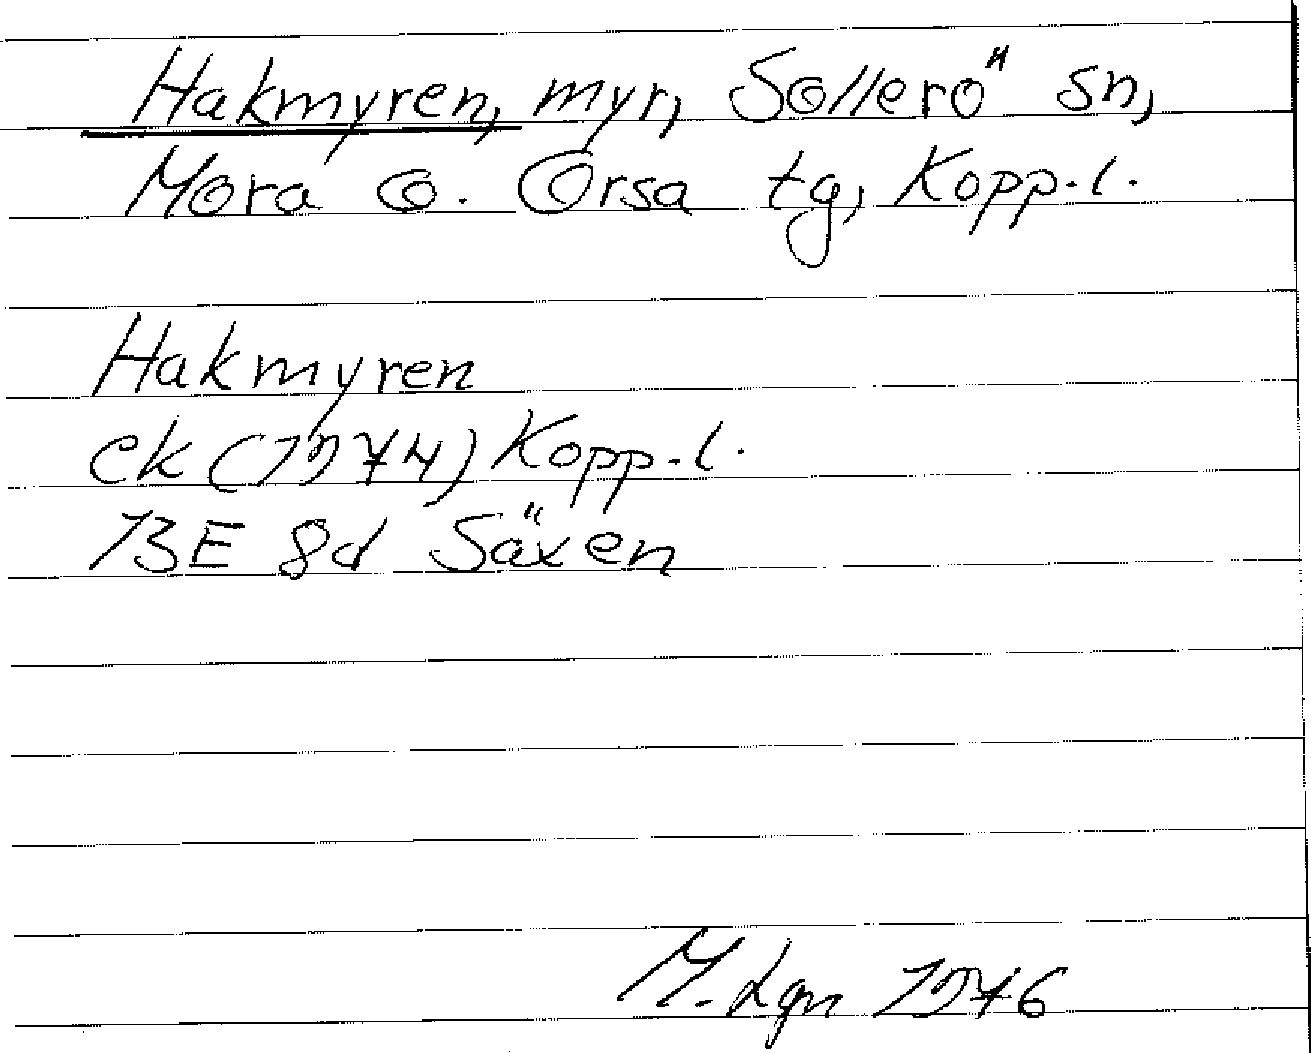 Hakmyren, myr, Sollerö sn,
Mora o. Orsa tg, Kopp.l.
Hakmyren
ek (1974) Kopp.l.
13E 8d Säxen
M. Lgn 1976